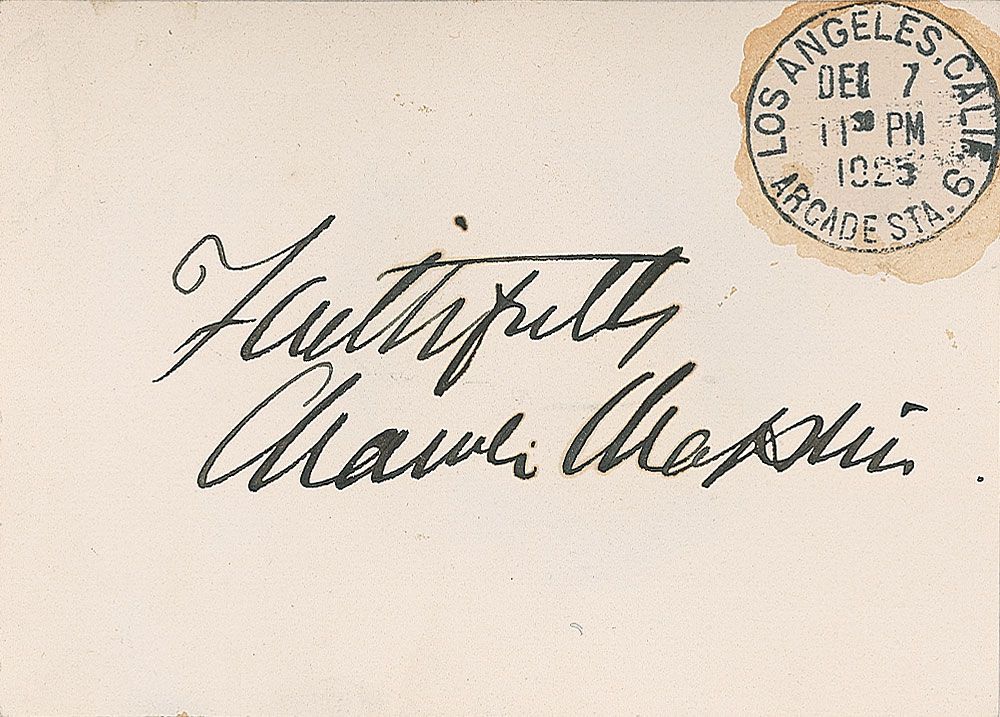 LOS ANGELES, CALIF.
DEC 7
11 30 PM
1925
ARCADE STA. 9
Faithfully
Charlie Chaplin